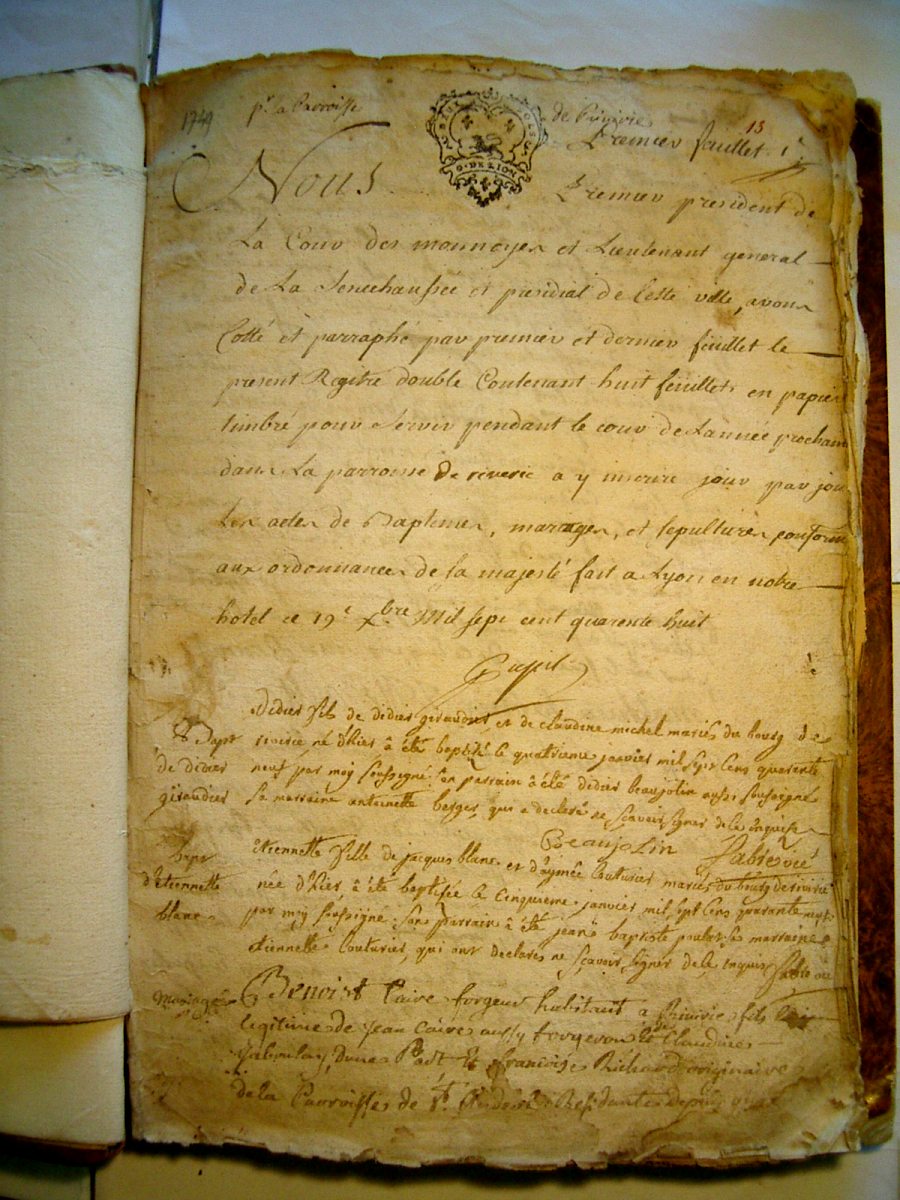 1749
pr. la Parroisse
de Riverie
13
Premier feuillet. 1
G. DE LION
Nous Premier president de
La Cour des monnoyes et Lieutenant general
de La Senechaussée et presidial de Cette ville, avons
Cotté et parraphé par premier et dernier feuillet le
present Registre double Contenant huit feuillets en papier
timbré pour Servir pendant le cour de Lannée prochain
dans La parroisse de riverie a y inscrire jour par jou
Les actes de Baptemes, mariages, et sepultures conform
aux ordonnances de sa majesté fait a Lyon en notre
hotel ce 19e xbre Mil sept cent quarente huit
Pupil
Bapt
de didier
giraudier
Didier fils de didier giraudier et de claudine michel mariés du bourg de
riverie né d'hier à été baptizé le quatrieme janvier mil sept cens quarante
neuf par moy soussigné son parrain à été didier beaujolin aussi soussigné
sa marraine antoinette berger, qui a declaré ne scavoir signer de ce enquise
Beaujolin
bapt
d'Etiennette
blanc
Etiennette fille de jacques blanc et d'aymée Couturier mariés du bourg de riverie
née d'hier à été baptisée le cinquieme janvier mil sept Cens quarante neuf
par moy soussigné son parrain à été jean baptiste sa marraine
etiennette Couturier, qui ont declarés ne scavoir signer de ce enquis
Mariage
Benoist Caire forgeur habitant a Riverie fils
legitime de Jean Caire aussy forgeron et de Claudine
et françoise Richard originaire
de la Parroisse de St. Residante Depuis